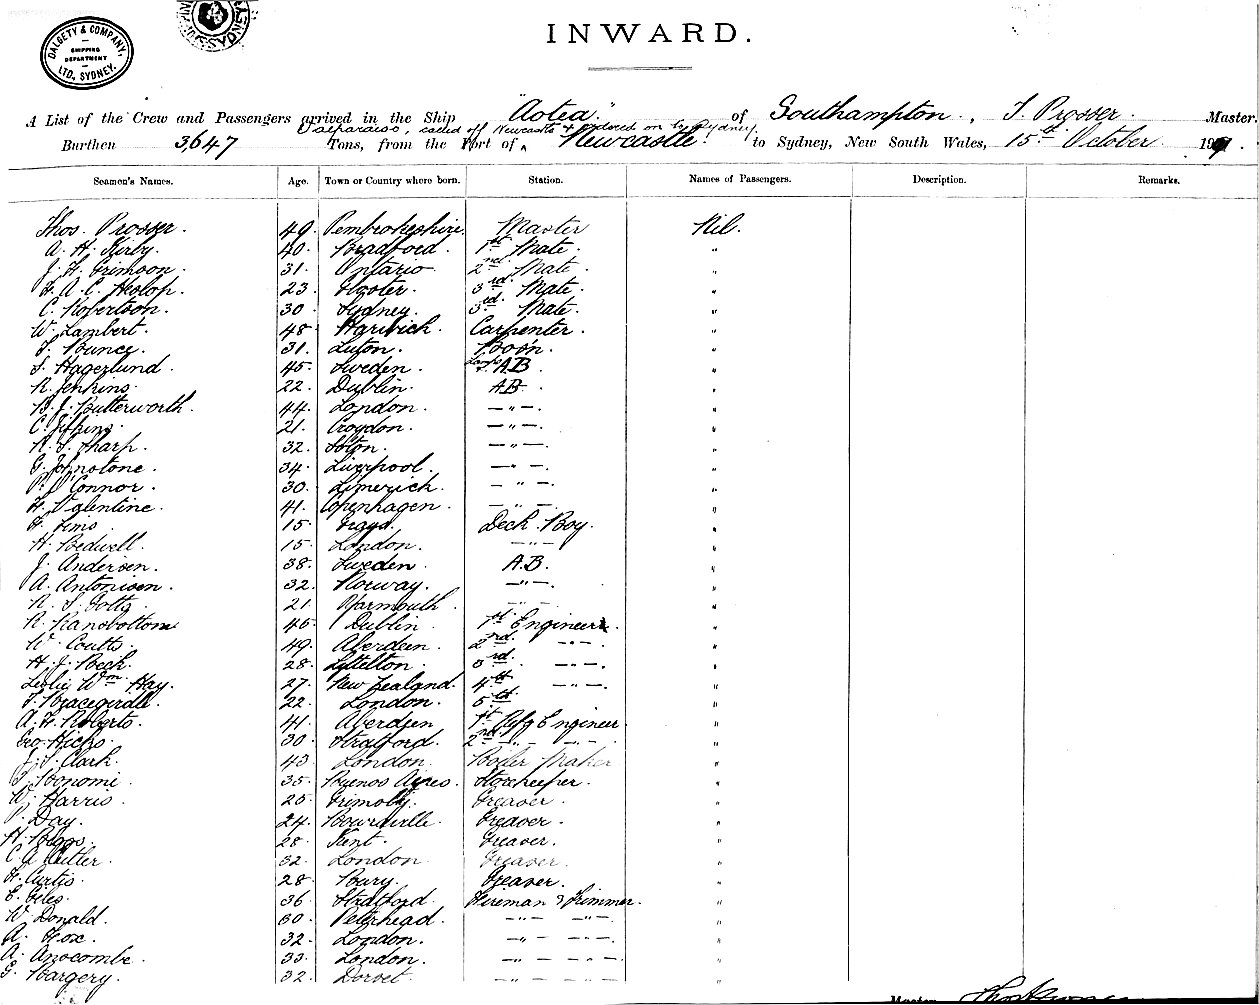 DALGETY & COMPANY, LTD, SYDNEY.
SHIPPING DEPARTMENT
SYDNEY
INWARD.
A List of the Crew and Passengers arrived in the Ship "Aotea" of Southampton, T. Prosser Master.
Valparaiso, called off Newcastle & ordered on to Sydney
Burthen 3,647 Tons, from the Port of Newcastle to Sydney, New South Wales, 15th October 19
Seamen's Names. Age. Town or Country where born. Station. Names of Passengers. Description. Remarks.
Thos. Prosser. 49. Pembrokeshire. Master Nil.
A. H. Kirby. 40. Bradford. 1st Mate. "
J. H. Grimson. 31. Ontario. 2nd Mate. "
H. A. C. Heslop. 23. Exeter. 3rd Mate. "
C. Robertson. 30. Sydney. 3rd Mate. "
W. Lambert. 48. Harwich. Carpenter. "
T. Bunce. 31. Luton. Bos'n. "
S. Hagerlund. 45. Sweden. Lamps & A.B. "
R. Jenkins. 22. Dublin. A.B. "
B. J. Butterworth. 44. London. — " — "
C. Jifkins. 21. Croydon. — " — "
R. S. Sharp. 32. Soton. — " — "
G. Johnstone. 34. Liverpool. — " — "
P. O'Connor. 30. Limerick. — " — "
H. Valentine. 41. Copenhagen. — " — "
H. Sims. 15. Grays. Deck Boy. "
H. Bedwell. 15. London. — " — "
J. Andersen. 38. Sweden. A.B. "
A. Antonisen. 32. Norway. — " — "
R. S. Potts. 21. Yarmouth. — " — "
R. Ransbottom 46. Dublin. 1st Engineer. "
W. Coutts. 49. Aberdeen. 2nd — " — "
H. J. Beck. 28. Lyttelton. 3rd — " — "
Leslie Wm. Hay. 27. New Zealand. 4th — " — "
T. Bracegirdle. 22. London. 5th "
A. H. Roberts. 41. Aberdeen 1st Rfg Engineer "
Geo. Hicks. 30. Stratford. 2nd — " — "
J. S. Clark. 43. London. Boiler Maker "
T. Bonomi. 35. Buenos Aires. Storekeeper. "
W. Harris. 25. Grimsby. Greaser. "
P. Day. 24. Bournville. Greaser. "
H. Biggs. 28. Kent. Greaser. "
C. A. Cutler. 32. London. Greaser. "
H. Curtis. 28. Bury. Greaser. "
E. Giles. 36. Stratford. Fireman & Trimmer. "
W. Donald. 30. Peterhead. — " — "
A. Fox. 32. London. — " — "
A. Anscombe. 33. London. — " — "
G. Bargery. 32. Dorset. — " — "
Master